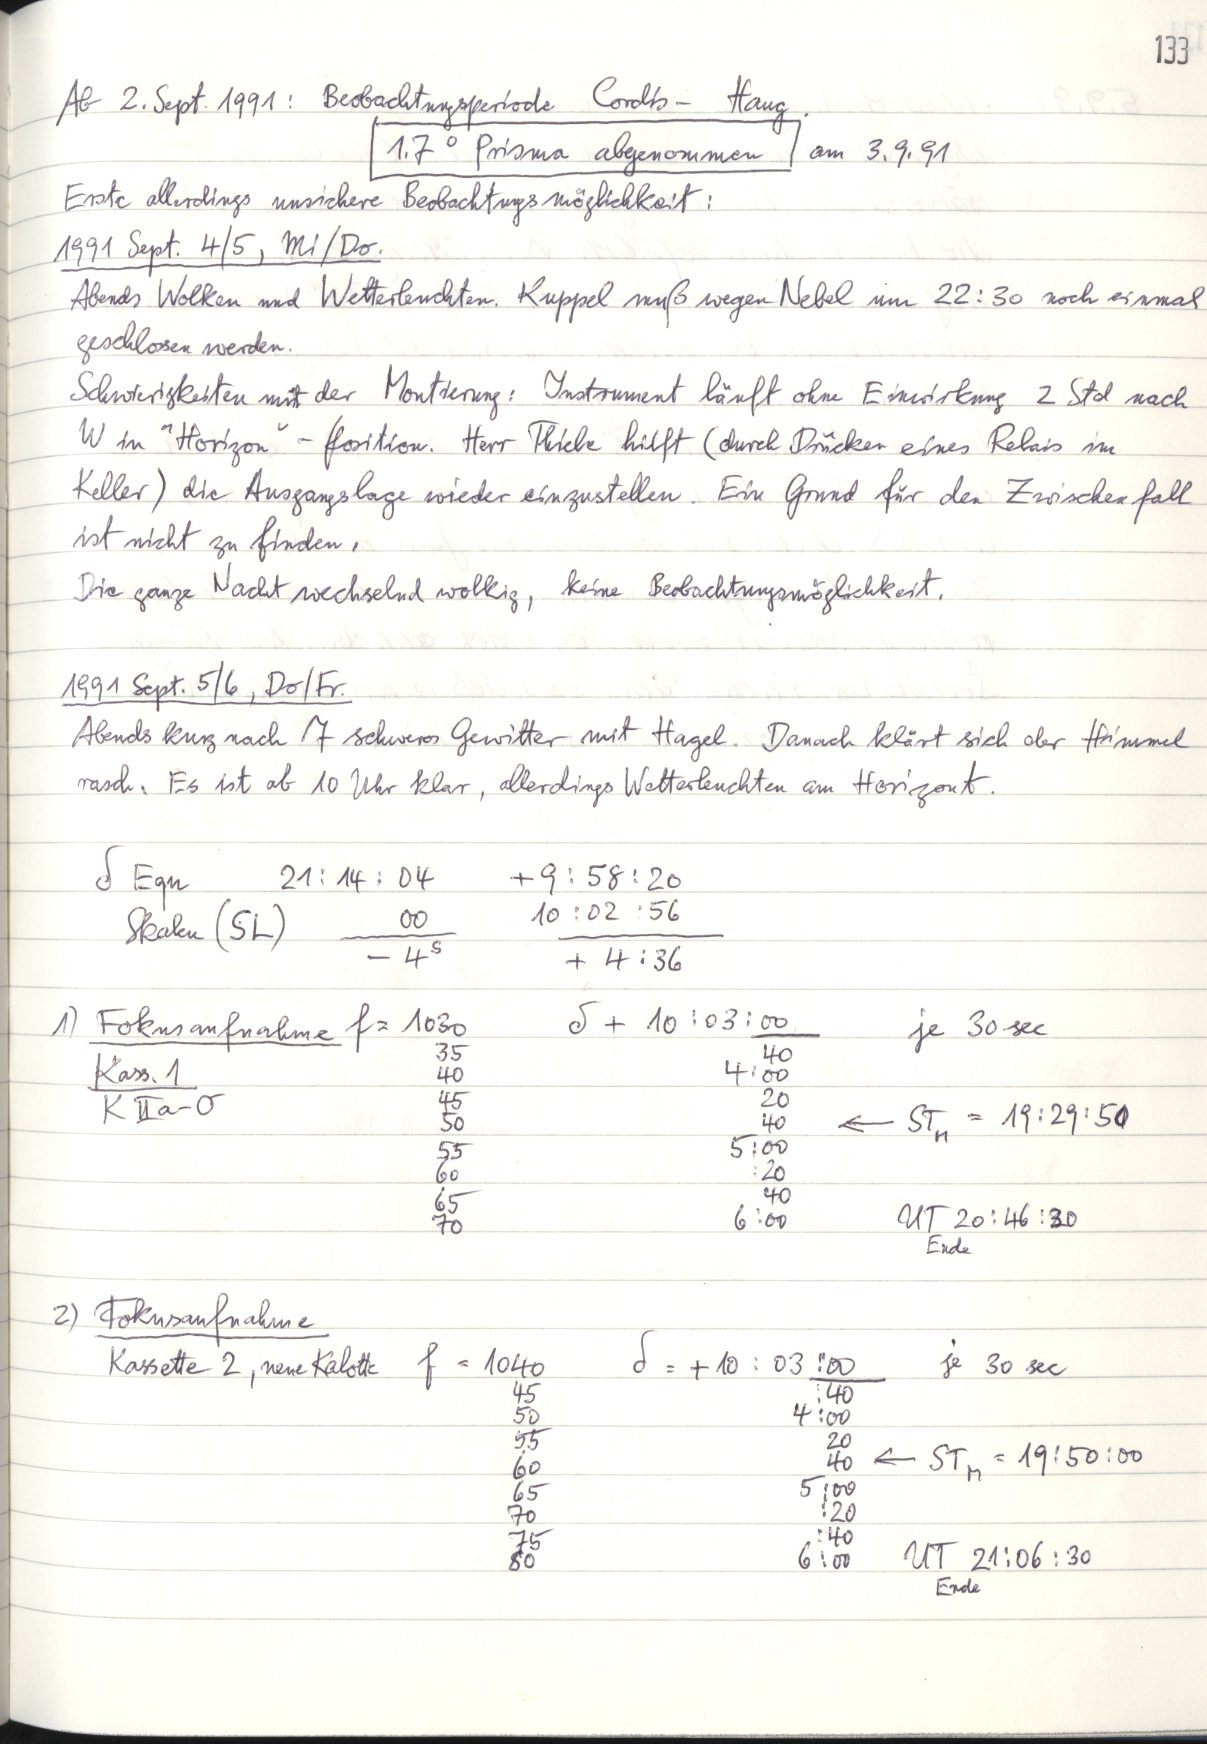 133
Ab 2. Sept. 1991: Beobachtungsperiode Cordis - Haug.
1.7° Prisma abgenommen am 3.9.91
Erste allerdings unsichere Beobachtungsmöglichkeit:
1991 Sept. 4/5, Mi/Do.
Abends Wolken und Wetterleuchten. Kuppel muß wegen Nebel um 22:30 noch einmal
geschlossen werden.
Schwierigkeiten mit der Montierung: Instrument läuft ohne Einwirkung 2 Std nach
W in "Horizon" - Position. Herr Thiele hilft (durch Drücken eines Relais im
Keller) die Ausgangslage wieder einzustellen. Ein Grund für den Zwischenfall
ist nicht zu finden.
Die ganze Nacht wechselnd wolkig, keine Beobachtungsmöglichkeit.
1991 Sept. 5/6, Do/Fr.
Abends kurz nach 7 schweres Gewitter mit Hagel. Danach klärt sich der Himmel
rasch. Es ist ab 10 Uhr klar, allerdings Wetterleuchten am Horizont.
δ Equ 21:14:04 +9:58:20
Skalen (SL) 00 10:02:56
- 4ˢ + 4:36
1) Fokusaufnahme f = 1030 δ + 10:03:00 je 30 sec
35 40
Kass. 1 40 4:00
K IIa-O 45 20
50 40 ← ST_M = 19:29:50
55 5:00
60 :20
65 40
70 6:00 UT 20:46:30
Ende
2) Fokusaufnahme
Kassette 2, neue Kalotte f = 1040 δ = +10:03:00 je 30 sec
45 :40
50 4:00
55 20
60 40 ← ST_M = 19:50:00
65 5:00
70 :20
75 :40
80 6:00 UT 21:06:30
Ende